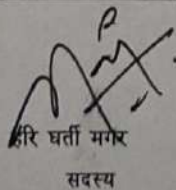 हरि घर्ती मगर
सदस्य